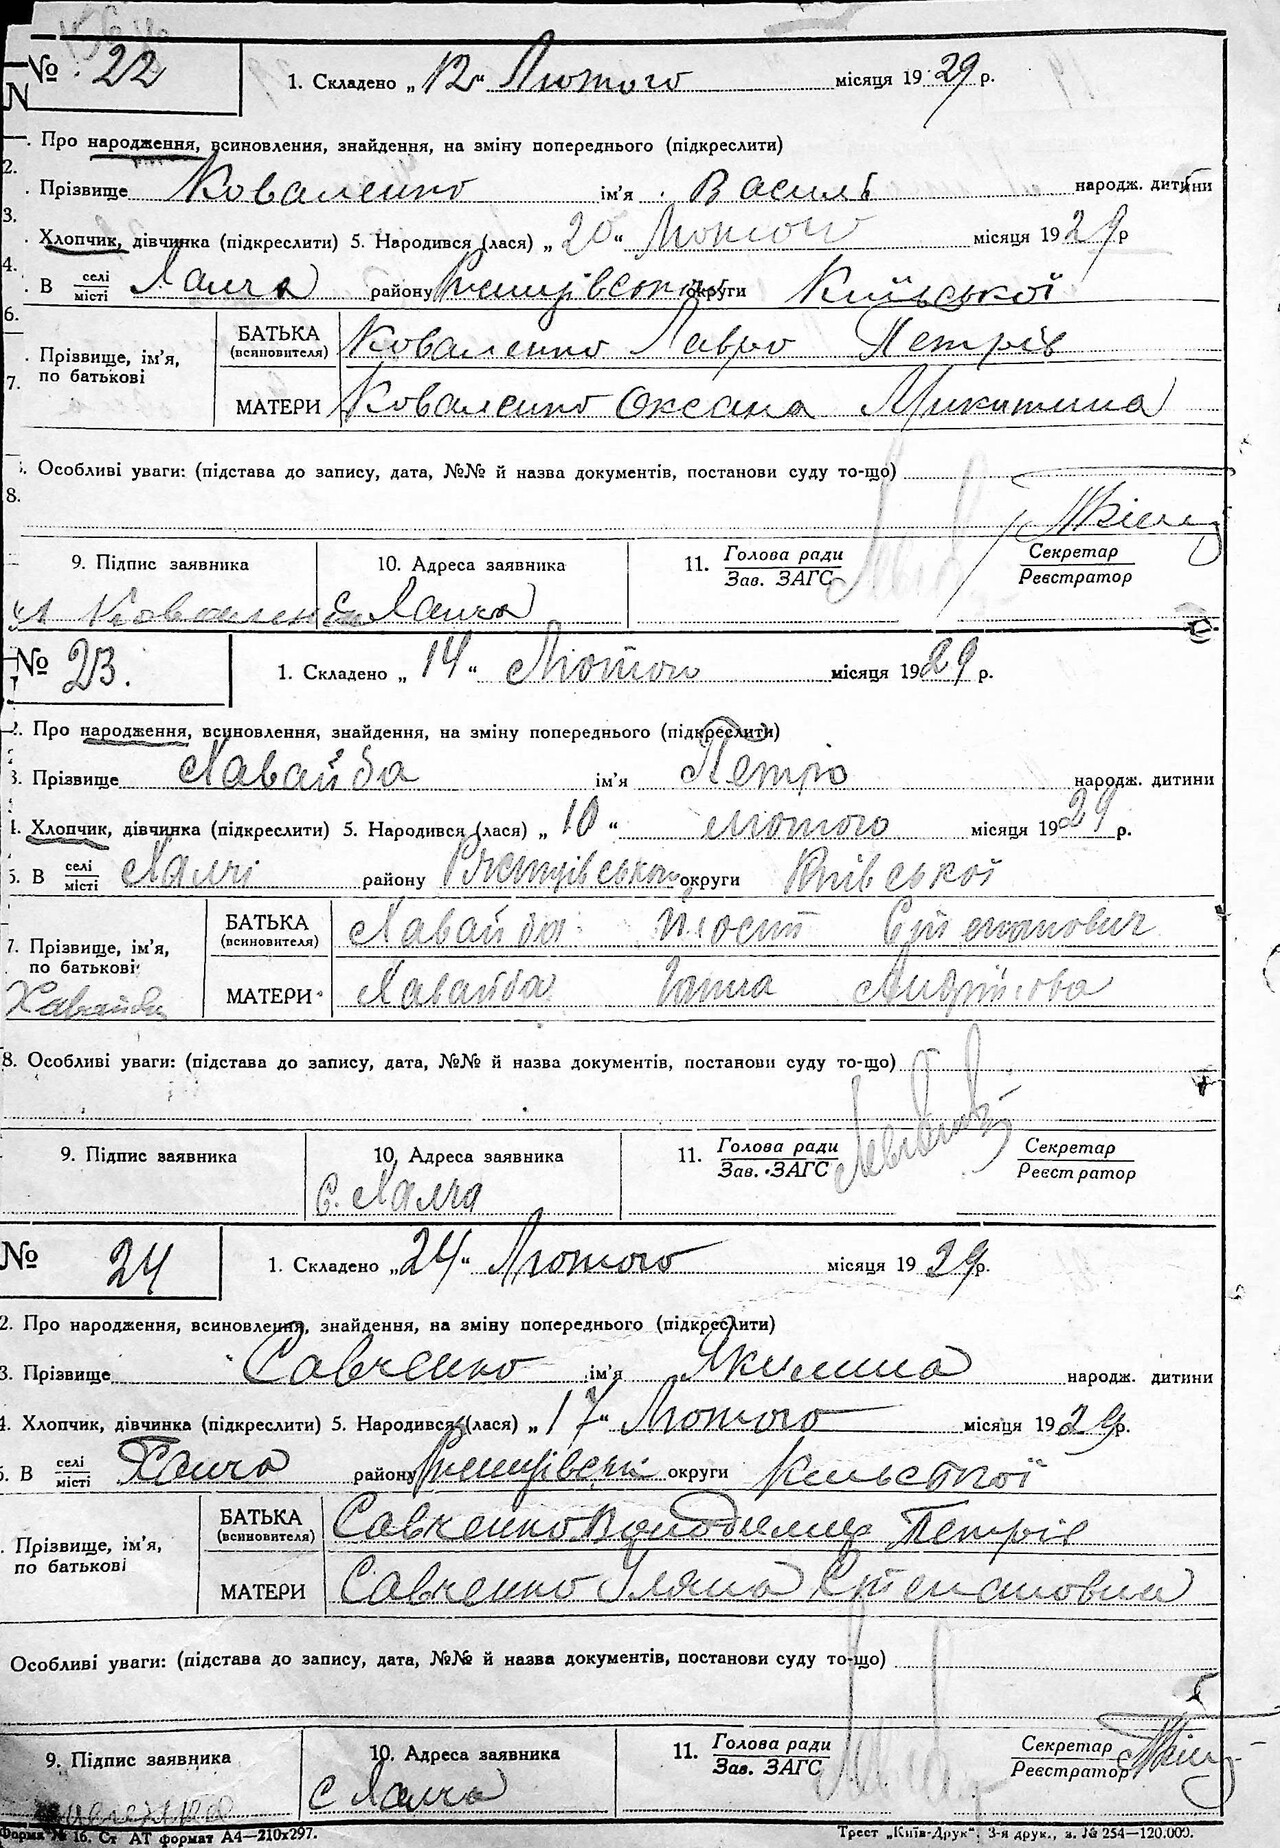 № 22 1. Складено „12“ Лютого місяця 1929 р.
Про народження, всиновлення, знайдення, на зміну попереднього (підкреслити)
2.
Прізвище Коваленко ім'я Василь народж. дитини
3.
Хлопчик, дівчинка (підкреслити) 5. Народився (лася) „20“ Лютого місяця 1929 р
4.
В селі місті Халча району Ржищівськ округи Київської
6.
Прізвище, ім'я, по батькові БАТЬКА (всиновителя) Коваленко Лавро Петрів
7.
МАТЕРИ Коваленко Оксана Микитина
Особливі уваги: (підстава до запису, дата, №№ й назва документів, постанови суду то-що)
8.
9. Підпис заявника 10. Адреса заявника 11. Голова ради Зав. ЗАГС Секретар Реєстратор
Коваленко с Халча
№ 23. 1. Складено „14“ Лютого місяця 1929 р.
2. Про народження, всиновлення, знайдення, на зміну попереднього (підкреслити)
3. Прізвище Хавайба ім'я Петро народж. дитини
4. Хлопчик, дівчинка (підкреслити) 5. Народився (лася) „10“ лютого місяця 1929 р.
5. В селі місті Халчі району Ржищівського округи Київської
БАТЬКА (всиновителя) Хавайба Йосип Степанович
7. Прізвище, ім'я, по батькові
Хавайба МАТЕРИ Хавайба Ганна Андріївна
8. Особливі уваги: (підстава до запису, дата, №№ й назва документів, постанови суду то-що)
9. Підпис заявника 10. Адреса заявника 11. Голова ради Зав. ЗАГС Секретар Реєстратор
с. Халча
№ 24 1. Складено „24“ Лютого місяця 1929 р.
2. Про народження, всиновлення, знайдення, на зміну попереднього (підкреслити)
3. Прізвище Савченко ім'я Якилина народж. дитини
4. Хлопчик, дівчинка (підкреслити) 5. Народився (лася) „17“ Лютого місяця 1929 р.
5. В селі місті Халча району Ржищівськ округи Київської
БАТЬКА (всиновителя) Савченко Володимир Петрів
Прізвище, ім'я, по батькові
МАТЕРИ Савченко Уляна Степановна
Особливі уваги: (підстава до запису, дата, №№ й назва документів, постанови суду то-що)
9. Підпис заявника 10. Адреса заявника 11. Голова ради Зав. ЗАГС Секретар Реєстратор
с Халча
Форма № 16. Ст АТ формат А4—210х297. Трест „Київ-Друк“: 3-я друк., з. № 254—120.000.